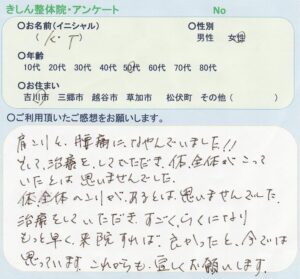 きしん整体院・アンケート No
○お名前(イニシャル) ○性別
(K・T) 男性 女性
○年齢
10代 20代 30代 40代 50代 60代 70代 80代
○お住まい
吉川市 三郷市 越谷市 草加市 松伏町 その他( )
○ご利用頂いたご感想をお願いします。
肩こりと、腰痛になやんでいました!!
そして、治療をしていただき、体全体がこって
いたとは思いませんでした。
体全体のこりがあるとは思いませんでした。
治療をしていただき、すごくらくになり
もっと早く来院すれば良かったと、今では
思っています。これからも宜しくお願いします。